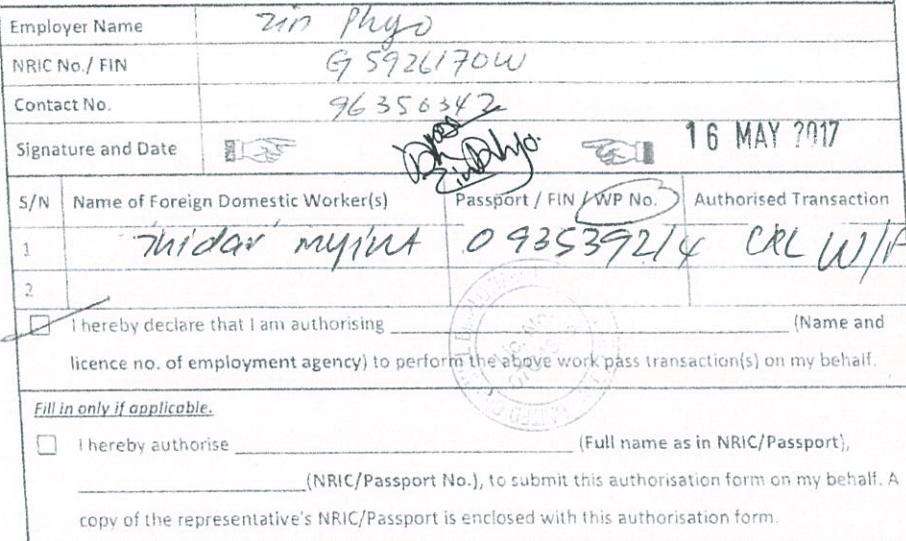 Employer Name Zin Phyo
NRIC No./ FIN G 5926170W
Contact No. 96356342
Signature and Date Zin Phyo. 16 MAY 2017
S/N Name of Foreign Domestic Worker(s) Passport / FIN / WP No. Authorised Transaction
1 Thidar Myint 0 93539214 CAL W/P
2
I hereby declare that I am authorising (Name and
licence no. of employment agency) to perform the above work pass transaction(s) on my behalf.
Fill in only if applicable.
I hereby authorise (Full name as in NRIC/Passport),
(NRIC/Passport No.), to submit this authorisation form on my behalf. A
copy of the representative's NRIC/Passport is enclosed with this authorisation form.